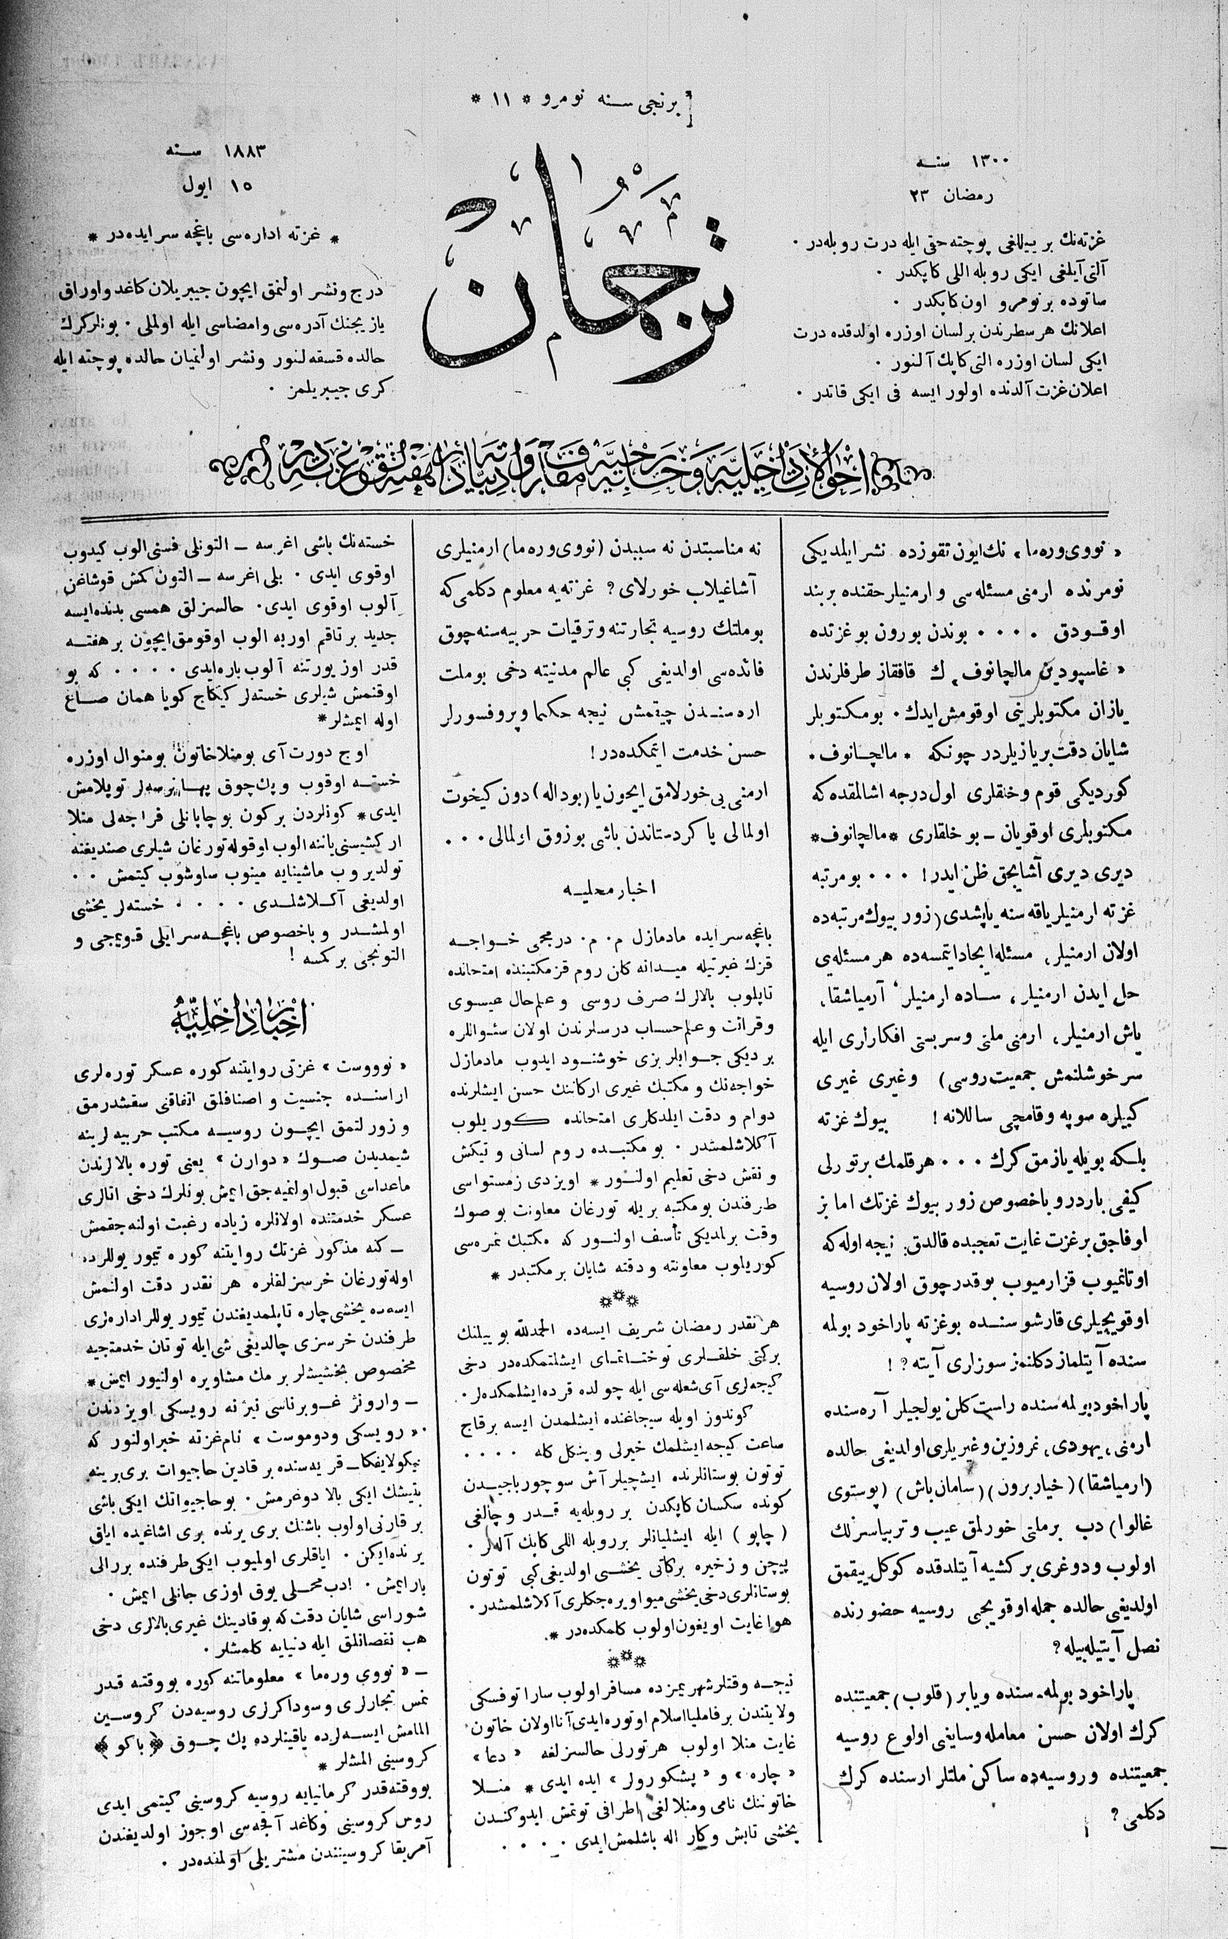 برنجی سنه نومرو * ۱۱ *
۱۳۰۰ سنه
رمضان ۲۳
۱۸۸۳ سنه
۱۵ ایول
ترجمان
غزته‌نك بر ییللغی پوچته حقی ایله درت روبله‌در .
آلتی آیلغی ایکی روبله اللی کاپکدر .
صاتوده بر نومرو اون کاپکدر .
اعلانك هر سطرندن بر لسان اوزره اولدقده درت
ایکی لسان اوزره التی کاپك آلنور .
اعلان غزت آلدنده اولور ایسه فی ایکی قاتدر .
* غزته اداره‌سی باغچه سرایده‌در *
درج و نشر اولنمق ایچون جیبریلان کاغد و اوراق
یازیجنك آدره‌سی و امضاسی ایله اولملی . بونلر کرك
حالده قسقه‌لنور و نشر اولنمیان حالده پوچته ایله
کری جیبریلمز .
« نووی وره‌ما » نك ایون تقوزده نشر ایلمدیکی
نومرنده ارمنی مسئله‌سی و ارمنیلر حقنده بر بند
اوقودق .... بوندن بورون بو غزتده
« غاسپودین مالچانوف » ك قافقاز طرفلرندن
یازان مکتوبلرینی اوقومش ایدك . بو مکتوبلر
شایان دقت بر یازیلردر چونکه * مالچانوف *
کوردیکی قوم و خلقلری اول درجه اشالمقده که
مکتوبلری اوقویان ـ بو خلقلری * مالچانوف *
دیری دیری آشایجق ظن ایدر ! ... بو مرتبه
غزته ارمنیلر یاقه‌سنه یاپشدی ( زور بیوك مرتبه‌ده
اولان ارمنیلر ، مسئله ایجاد ایتمسه‌ده هر مسئله‌یی
حل ایدن ارمنیلر ، ساده ارمنیلر ، آرمیاشقا ،
یاش ارمنیلر ، ارمنی ملتی و سربستی افکارلری ایله
سرخوشلنمش جمعیت روسی ) و غیری غیری
کبیلره صوپه و قامچی ساللانه ! بیوك غزته
بلکه بویله یازمق کرك ... هر قلمك بر تورلی
کیفی باردر و باخصوص زور بیوك غزتك اما بز
اوفاجق بر غزت غایت تعجبده قالدق . نیجه اوله که
اوتانمیوب قزارمیوب بوقدر چوق اولان روسیه
اوقویجیلری قارشوسنده بو غزته پاراخود بولمه
سنده آیتلماز دکلنمز سوزلری آیته ؟ !
پاراخود بولمه‌سنده راست کلن یولجیلر آره‌سنده
ارمنی ، یهودی ، غروزین و غیریلری اولدیغی حالده
( ارمیاشقا ) ( خیار برون ) ( سامان باش ) ( پوستوی
غالوا ) دب بر ملتی خورلمق عیب و تربیاسزلك
اولوب و دوغری بر کشیه آیتلدقده کوکل ییقمق
اولدیغی حالده جمله اوقویجی روسیه حضورنده
نصل آیتیله‌بیله ؟
پاراخود بولمه‌سنده و یا بر ( قلوب ) جمعیتنده
کرك اولان حسن معامله و سایغی اولوغ روسیه
جمعیتنده و روسیه‌ده ساکن ملتلر ارسنده کرك
دکلمی ؟
نه مناسبتدن نه سببدن ( نووی وره‌ما ) ارمنیلری
آشاغیلاب خورلای ؟ غزته‌یه معلوم دکلمی که
بو ملتك روسیه تجارتنه و ترقیات حربیه‌سنه چوق
فائده‌سی اولدیغی کبی عالم مدنیته دخی بو ملت
اره‌سندن چیتمش نیجه حکما و پروفسورلر
حسن خدمت ایتمکده‌در !
ارمنی‌یی خورلامق ایچون یا ( بوداله ) دون کیخوت
اولمالی یا کردستاندن باشی بوزوق اولمالی ...
اخبار محلیه
باغچه سرایده مادمازل م . م . درمحمی خواجه
قزك غیرتیله میدانه کان روم قز مکتبنده امتحانده
تاپلوب بالالرك صرف روسی و علم حال عیسوی
و قرائت و علم حساب درسلرندن اولان سئواللره
بردیکی جوابلر بزی خوشنود ایدوب مادمازل
خواجه‌نك و مکتبك غیری ارکاننك حسن ایشلرنده
دوام و دقت ایلدکلری امتحانده کوریلوب
آکلاشلمشدر . بو مکتبده روم لسانی و تیکش
و نقش دخی تعلیم اولنور * اویزدی زمستواسی
طرفندن بو مکتبه بریله تورغان معاونت بو صوك
وقت برلمدیکی تأسف اولنور که مکتبك ثمره‌سی
کوریلوب معاونته و دقته شایان بر مکتبدر *
هر نقدر رمضان شریف ایسه‌ده الحمدلله بو ییلنك
برکتی خلقلری توختاتمای ایشلتمکده‌در دخی
کیجه‌لری آی شعله‌سی ایله چولده قرده ایشلمکده‌لر .
کوندوز اویله سیجاغنده ایشلمدن ایسه بر قاج
ساعت کیجه ایشلمك خیرلی و ینکل کله ....
توتون بوستانلرنده ایشچیلر آش سو چورباجیدن
کونده سکسان کاپکدن بر روبله‌یه قدر و چالغی
( چاپو ) ایله ایشلیانلر بر روبله اللی کاپك آله‌لر .
پیچن و زخیره برکاتی یخشی اولدیغی کبی توتون
بوستانلری دخی یخشی میوا ویره‌جکلری آکلاشلمشدر .
هوا غایت اویغون اولوب کلمکده‌در *
نیجه وقتلر شهریمزده مسافر اولوب ساراتوفسکی
ولایتندن بر فامیلیا اسلام اوتوره ایدی آنا اولان خاتون
غایت منلا اولوب هر تورلی حالسزلغه « دعا »
« چاره » و « پشکورولر » ایده ایدی * منلا
خاتوننك نامی و منلالغی اطرافی توتمش ایدوکندن
یخشی تابش و کار اله باشلمش ایدی ....
خسته‌نك باشی اغرسه ـ التونلی فسنی الوب کیدوب
اوقوی ایدی . بلی اغرسه ـ التون کمش قوشاغن
آلوب اوقوی ایدی . حالسزلق همسی بدنده ایسه
جدید بر تاقم اوربه الوب اوقومق ایچون بر هفته
قدر اوز یورتنه آلوب باره ایدی .... که بو
اوقنمش شیلری خسته‌لر کیکاج کویا همان صاغ
اوله ایمشلر *
اوج دورت آی بو منلا خاتون بو منوال اوزره
خسته اوقوب و پك چوق بهالی نرسه‌لر توپلامش
ایدی * کونلردن بر کون بو چاپانلی فراجه‌لی منلا
ار کشیسنی یاننه الوب اوقوله تورغان شیلری صندیغنه
تولدیروب ماشینایه مینوب ساوشوب کیتمش ..
اولدیغی آکلاشلدی .... خسته‌لر یخشی
اولمشدر و باخصوص باغچه سرایلی قویمجی و
التونجی بر کمسه !
اخبار داخلیه
« نووست » غزتی روایتنه کوره عسکر توره‌لری
اراسنده جنسیت و اصنافلق اتفاقنی سقشدرمق
و زورلتمق ایچون روسیه مکتب حربیه لرینه
شیمدیدن صوك « دوارن » یعنی توره بالالرندن
ماعداسی قبول اولنمیه‌جق ایمش بونلرك دخی اتالری
عسکر خدمتنده اولانلره زیاده رغبت اولنه‌جقمش
ـ کنه مذکور غزتك روایتنه کوره تیمور یوللرده
اوله‌تورغان خرسزلقلره هر نقدر دقت اولنمش
ایسه‌ده یخشی چاره تاپلمدیغندن تیمور یوللر اداره‌لری
طرفندن خرسزی چالدیغی شی ایله توتان خدمتجیه
مخصوص بخششلر برمك مشاویره اولنیور ایمش *
ـ وارونژ غوبرناسی نیژنه‌رویسکی اویزدندن
« رویسکی ودوموست » نام غزته خبر اولنور که
نیکولایفکا قریه‌سنده بر قادین حاجیوات بری برینه
بتیشك ایکی بالا دوغرمش . بو حاجیواتك ایکی باشی
بر قارنی اولوب باشنك بری یرنده بری اشاغیده ایاق
یرنده ایکن . ایاقلری اولمیوب ایکی طرفنده بررالی
بار ایمش . ادب محلی یوق اوزی جانلی ایمش .
شوراسی شایان دقت که بو قادینك غیری بالالری دخی
هب نقصانلق ایله دنیایه کلمشلر .
ـ « نووی وره‌ما » معلوماتنه کوره بو وقتنه قدر
نمس تجارلری و سوداکرلری روسیه‌دن کروسین
المامش ایسه‌لرده یاقینلرده پك چوق ﴿ باکو ﴾
کروسینی المشلر *
بو وقته قدر کرمانیایه روسیه کروسینی کیتمی ایدی
روس کروسینی و کاغد آقجه‌سی اوجوز اولدیغندن
آمریقا کروسینندن مشتریلی اولمنده‌در .